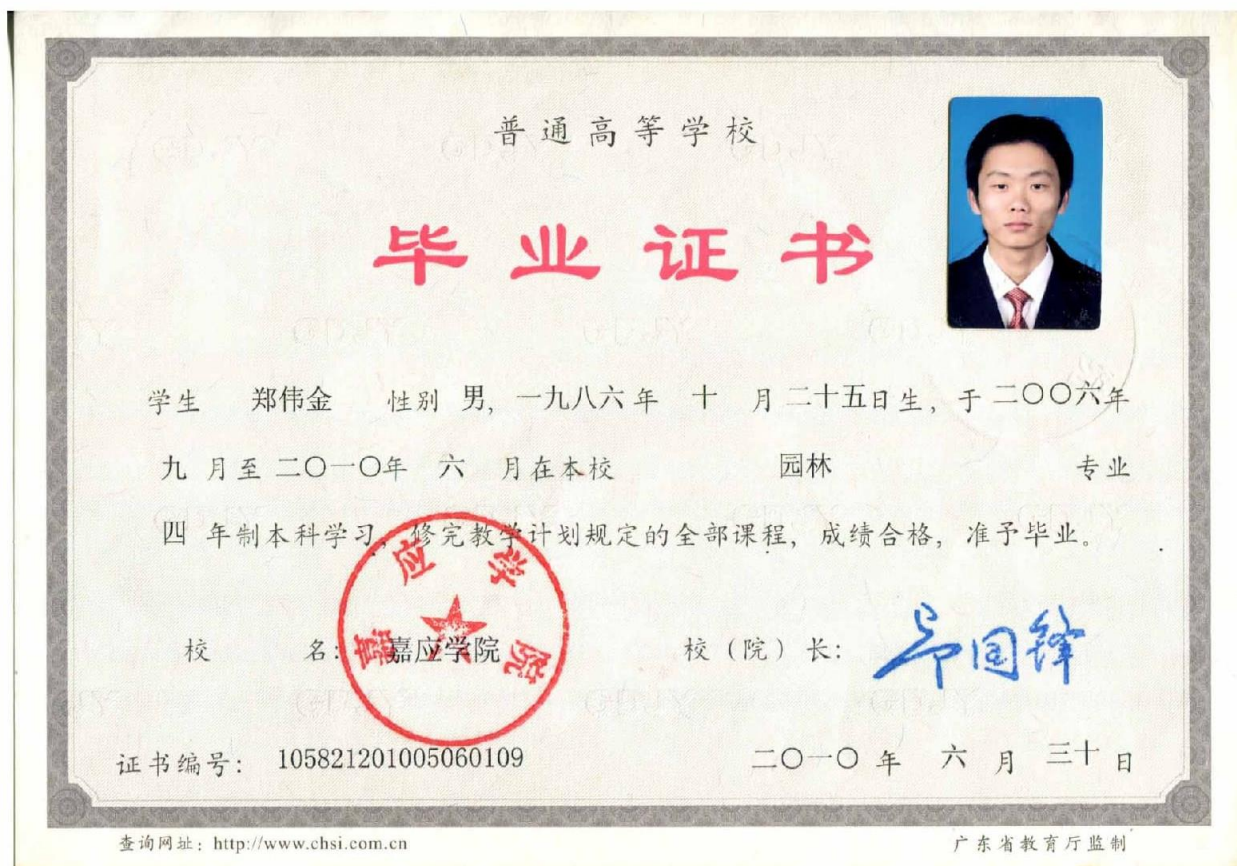 普通高等学校
毕业证书
学生 郑伟金 性别 男，一九八六年 十 月二十五日生，于二〇〇六年
九 月至二〇一〇年 六 月在本校 园林 专业
四 年制本科学习，修完教学计划规定的全部课程，成绩合格，准予毕业。
嘉应学院
校 名：嘉应学院 校（院）长：
证书编号：105821201005060109 二〇一〇年 六 月 三十 日
查询网址：http://www.chsi.com.cn 广东省教育厅监制